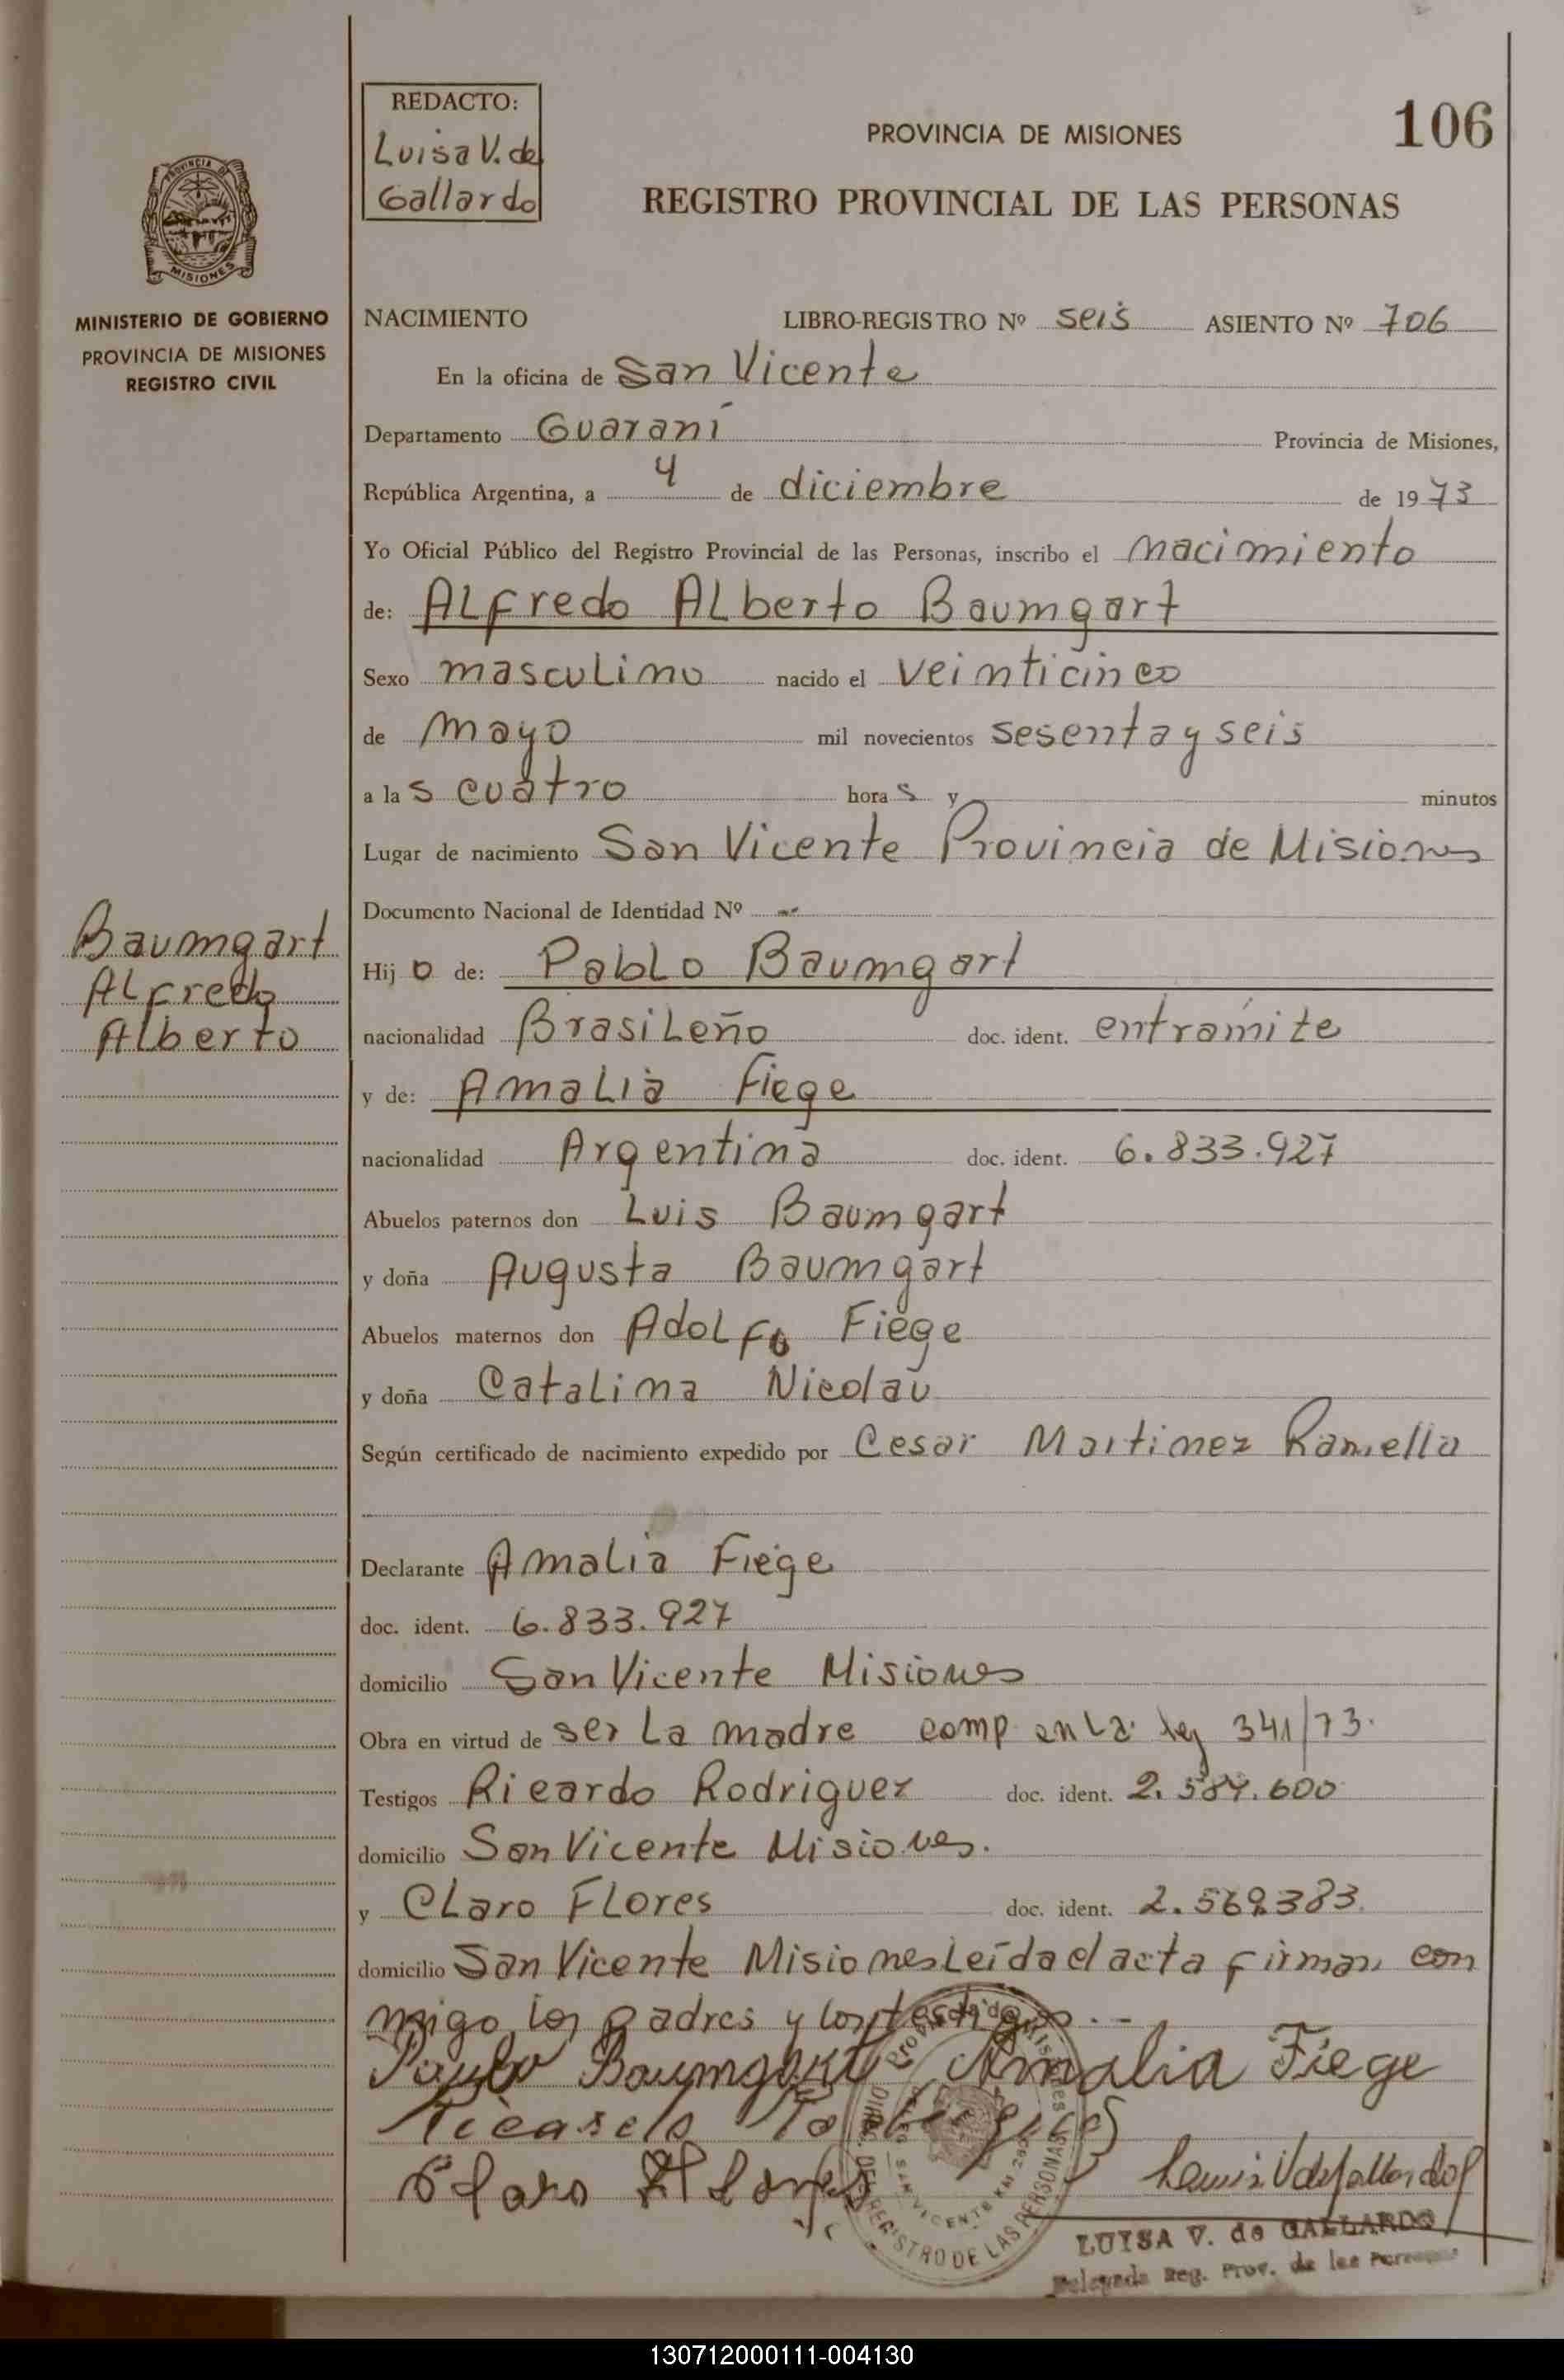 REDACTO:
Luisa V. de
Gallardo
PROVINCIA DE MISIONES
106
REGISTRO PROVINCIAL DE LAS PERSONAS
PROVINCIA DE
MISIONES
MINISTERIO DE GOBIERNO
PROVINCIA DE MISIONES
REGISTRO CIVIL
NACIMIENTO LIBRO-REGISTRO Nº seis ASIENTO Nº 706
En la oficina de San Vicente
Departamento Guaraní Provincia de Misiones,
República Argentina, a 4 de diciembre de 1973
Yo Oficial Público del Registro Provincial de las Personas, inscribo el nacimiento
de: Alfredo Alberto Baumgart
Sexo masculino nacido el veinticinco
de mayo mil novecientos sesenta y seis
a las cuatro horas y minutos
Lugar de nacimiento San Vicente Provincia de Misiones
Documento Nacional de Identidad Nº --
Baumgart
Alfredo
Alberto
Hijo de: Pablo Baumgart
nacionalidad Brasileño doc. ident. entramite
y de: Amalia Fiege
nacionalidad Argentina doc. ident. 6.833.927
Abuelos paternos don Luis Baumgart
y doña Augusta Baumgart
Abuelos maternos don Adolfo Fiege
y doña Catalina Nicolau
Según certificado de nacimiento expedido por Cesar Martinez Ramella
Declarante Amalia Fiege
doc. ident. 6.833.927
domicilio San Vicente Misiones
Obra en virtud de ser la madre comp en la ley 341/73.
Testigos Ricardo Rodriguez doc. ident. 2.584.600
domicilio San Vicente Misiones.
y Claro Flores doc. ident. 2.569.383.
domicilio San Vicente Misiones Leída el acta firman con
migo los padres y los testigos.--
Paulo Baumgart Amalia Fiege
Claro Flores
LUISA V. de GALLARDO
Delegada Reg. Prov. de las Personas
130712000111-004130